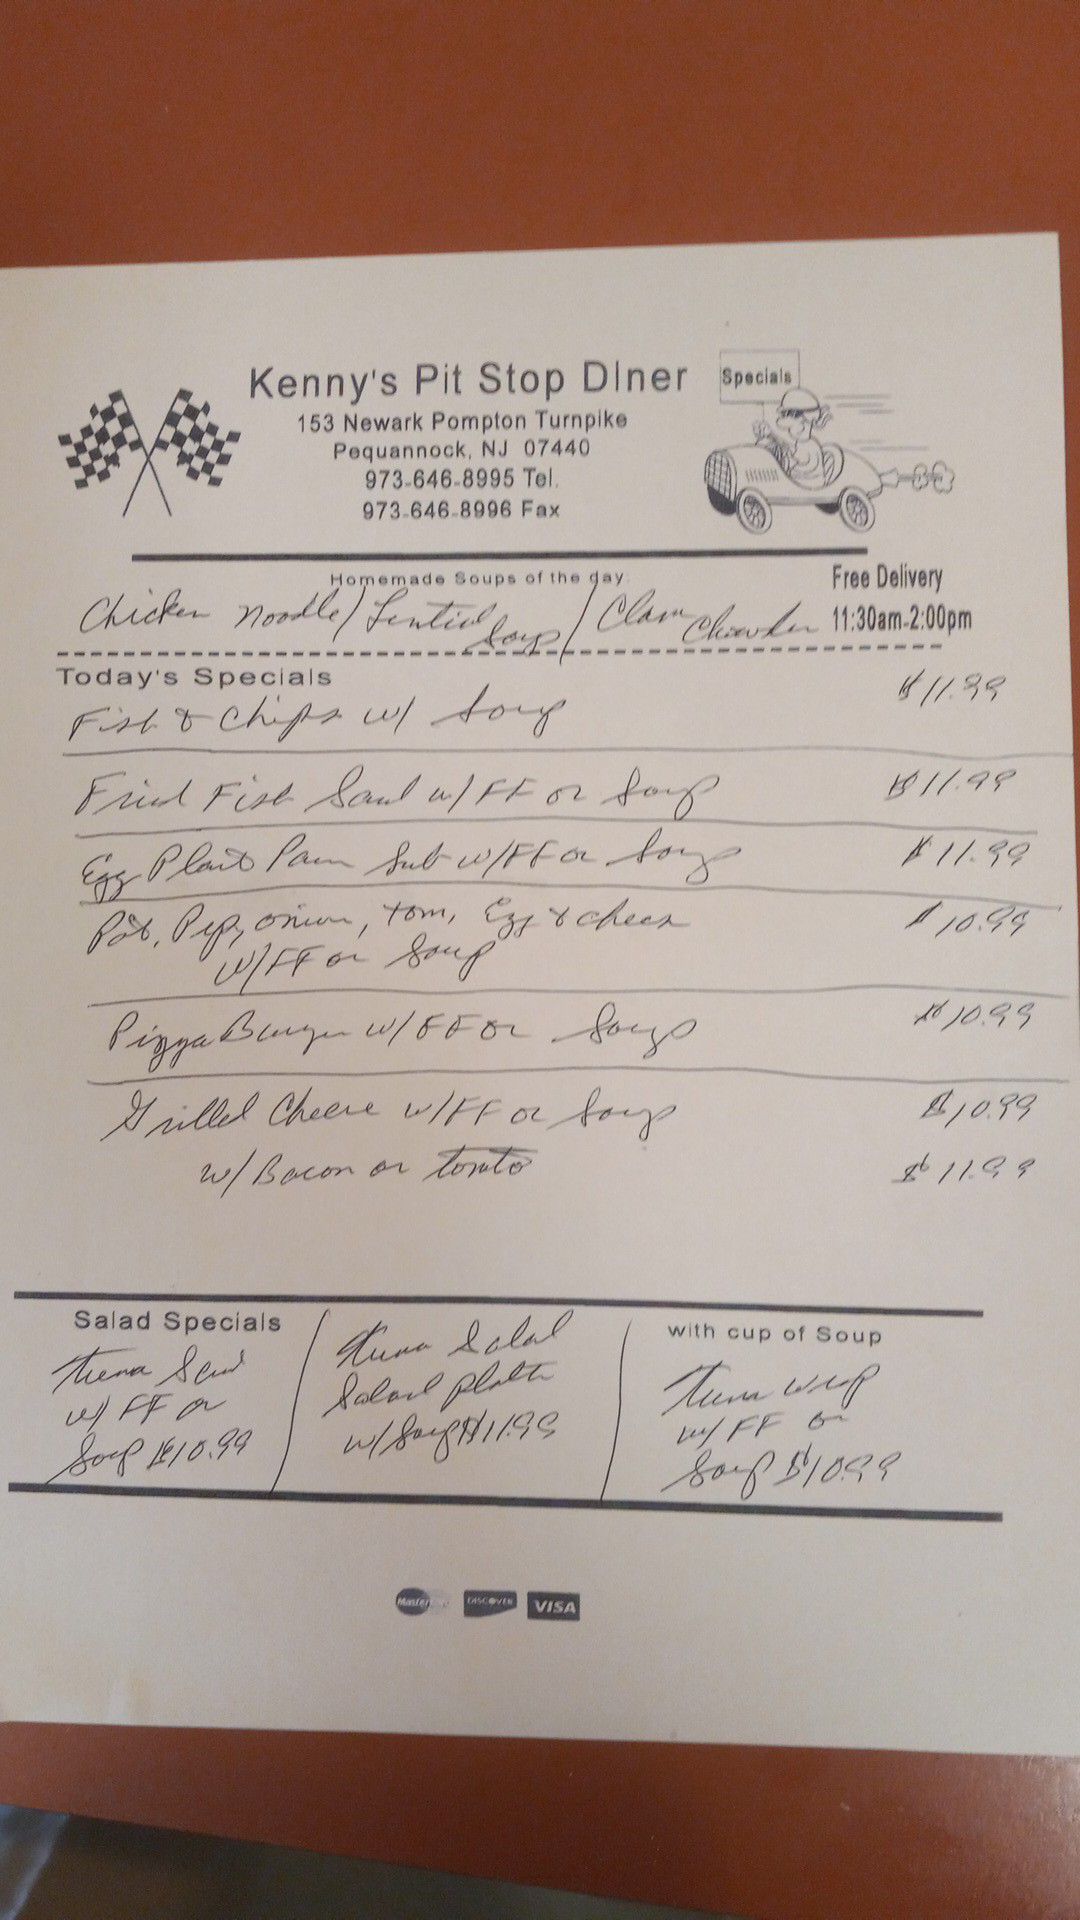 Kenny's Pit Stop DIner
Specials
153 Newark Pompton Turnpike
Pequannock, NJ 07440
973-646-8995 Tel.
973-646-8996 Fax
Homemade Soups of the day:
Free Delivery
11:30am-2:00pm
Chicken Noodle / Lentil Soup / Clam Chowder
Today's Specials
Fish & Chips w/ Soup $11.99
Fried Fish Sand w/FF or Soup $11.99
Egg Plant Parm Sub w/FF or Soup $11.99
Pot, Pep, onion, tom, Egg & cheese $10.99
w/FF or Soup
Pizza Burger w/FF or Soup $10.99
Grilled Cheese w/FF or Soup $10.99
w/Bacon or tomto $11.99
Salad Specials
Tuna Sand
w/ FF or
Soup $10.99
Tuna Salad
Salad platte
w/Soup $11.99
with cup of Soup
Tuna wrap
w/ FF or
Soup $10.99
Master
DISCOVER
VISA